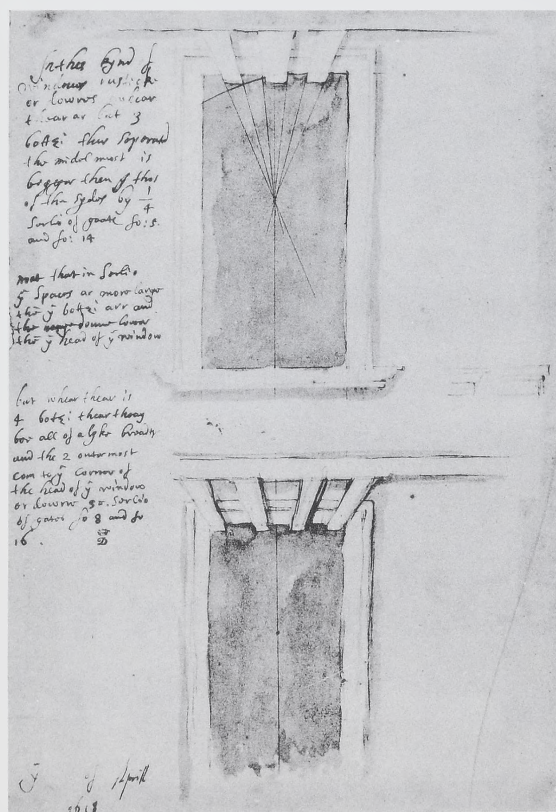 In thes kynd of
windows rustick
or dowres whear
thear ar but 3
bottzi thus separated
the midel must is
bigger then y thos
of the sydes by 1/4
Serlio of gaate fo: 5.
and fo: 14
noat that in Serlio
y spaces ar more large
the y bottzi arr and
the downe lower
the y head of y window
but whear thear is
4 bottzi thear thay
bee all of a lyke breadth
and the 2 outermost
com to y Corner of
the head of y window
or dowre se. Serlio
of gates fo 8 and fo
16.
y of Aprill
1618